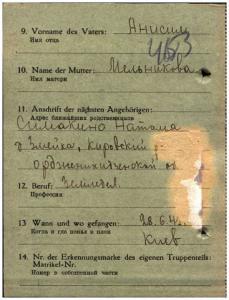 9. Vorname des Vaters: Анисим
Имя отца
4653
10. Name der Mutter: Мельникова
Имя матери
11. Anschrift der nächsten Angehörigen:
Адрес ближайших родственников
Симакино Натала
д. Змейка, Кировский р.
орджоникидзенской об
12. Beruf: Земледел.
Профессия
13 Wann und wo gefangen: 28.6.4
Когда и где попал в плен
Киев
14. Nr. der Erkennungsmarke des eigenen Truppenteils:
Matrikel-Nr.
Номер в собственной части